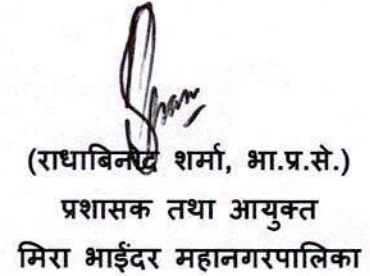 (राधाबिनोद शर्मा, भा.प्र.से.)
प्रशासक तथा आयुक्त
मिरा भाईंदर महानगरपालिका